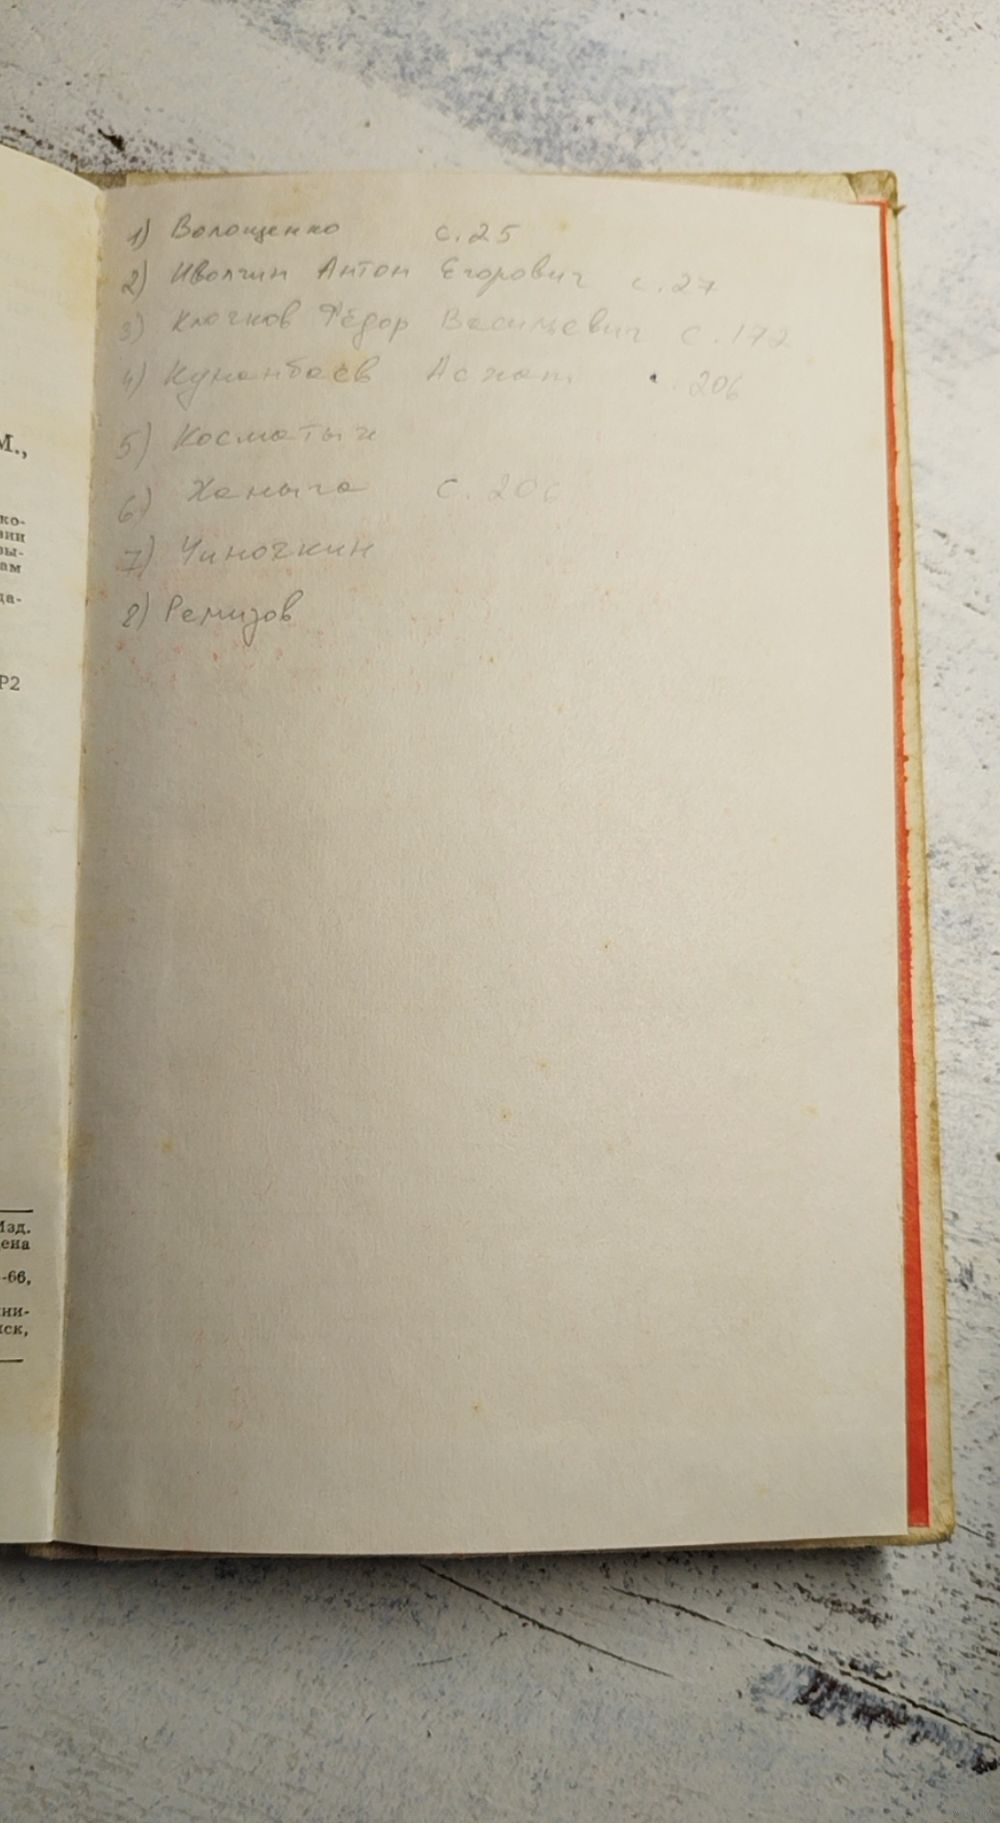 М.,
ко-
зии
вы-
ам
да-
Р2
Изд.
ена
-66,
ни-
ск,
1) Волощенко с.25
2) Иволгин Антон Егорович с.27
3) Клочков Фёдор Васильевич с.172
4) Кунанбаев Асхат с.206
5) Косматых
6) Ханыга с.206
7) Чиночкин
8) Ремизов